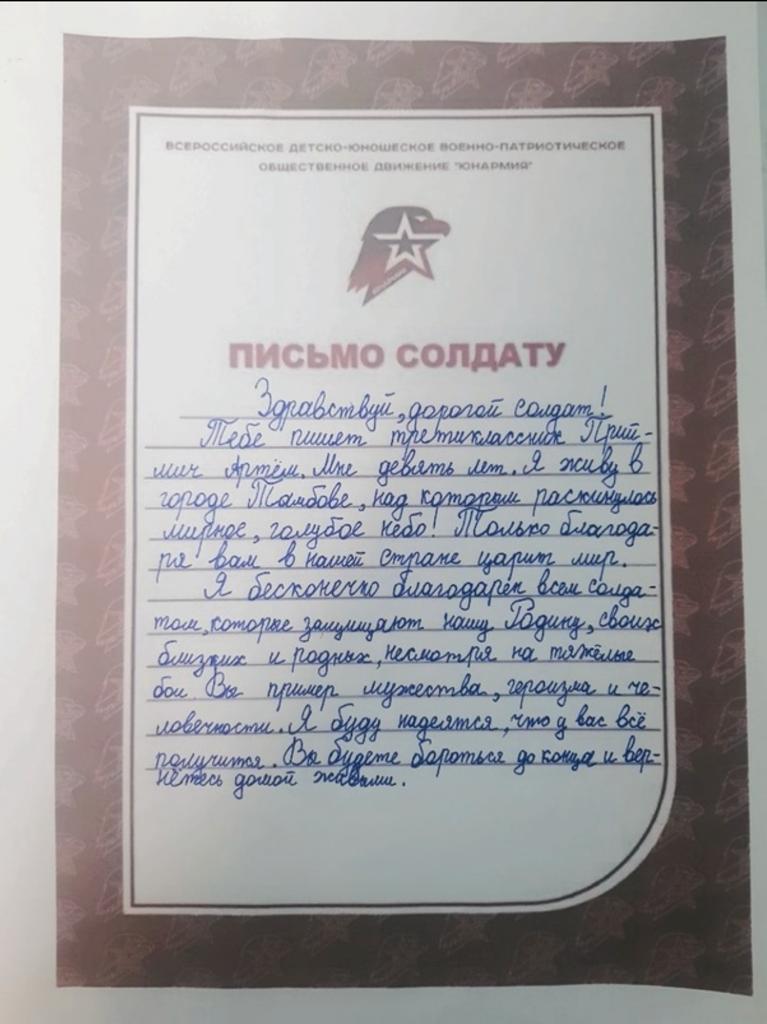 ВСЕРОССИЙСКОЕ ДЕТСКО-ЮНОШЕСКОЕ ВОЕННО-ПАТРИОТИЧЕСКОЕ
ОБЩЕСТВЕННОЕ ДВИЖЕНИЕ "ЮНАРМИЯ"
ЮНАРМИЯ
ПИСЬМО СОЛДАТУ
Здравствуй, дорогой солдат!
Тебе пишет третиклассник Прий-
мич Артём. Мне девять лет. Я живу в
городе Тамбове, над которым раскинулось
мирное, голубое небо! Только благода-
ря вам в нашей стране царит мир.
Я бесконечно благодарен всем солда-
том, которые защищают нашу Родину, своих
близких и родных, несмотря на тяжёлые
бои. Вы пример мужества, героизма и че-
ловечности. Я буду надеятся, что у вас всё
получится. Вы будете бороться до конца и вер-
нётесь домой живыми.